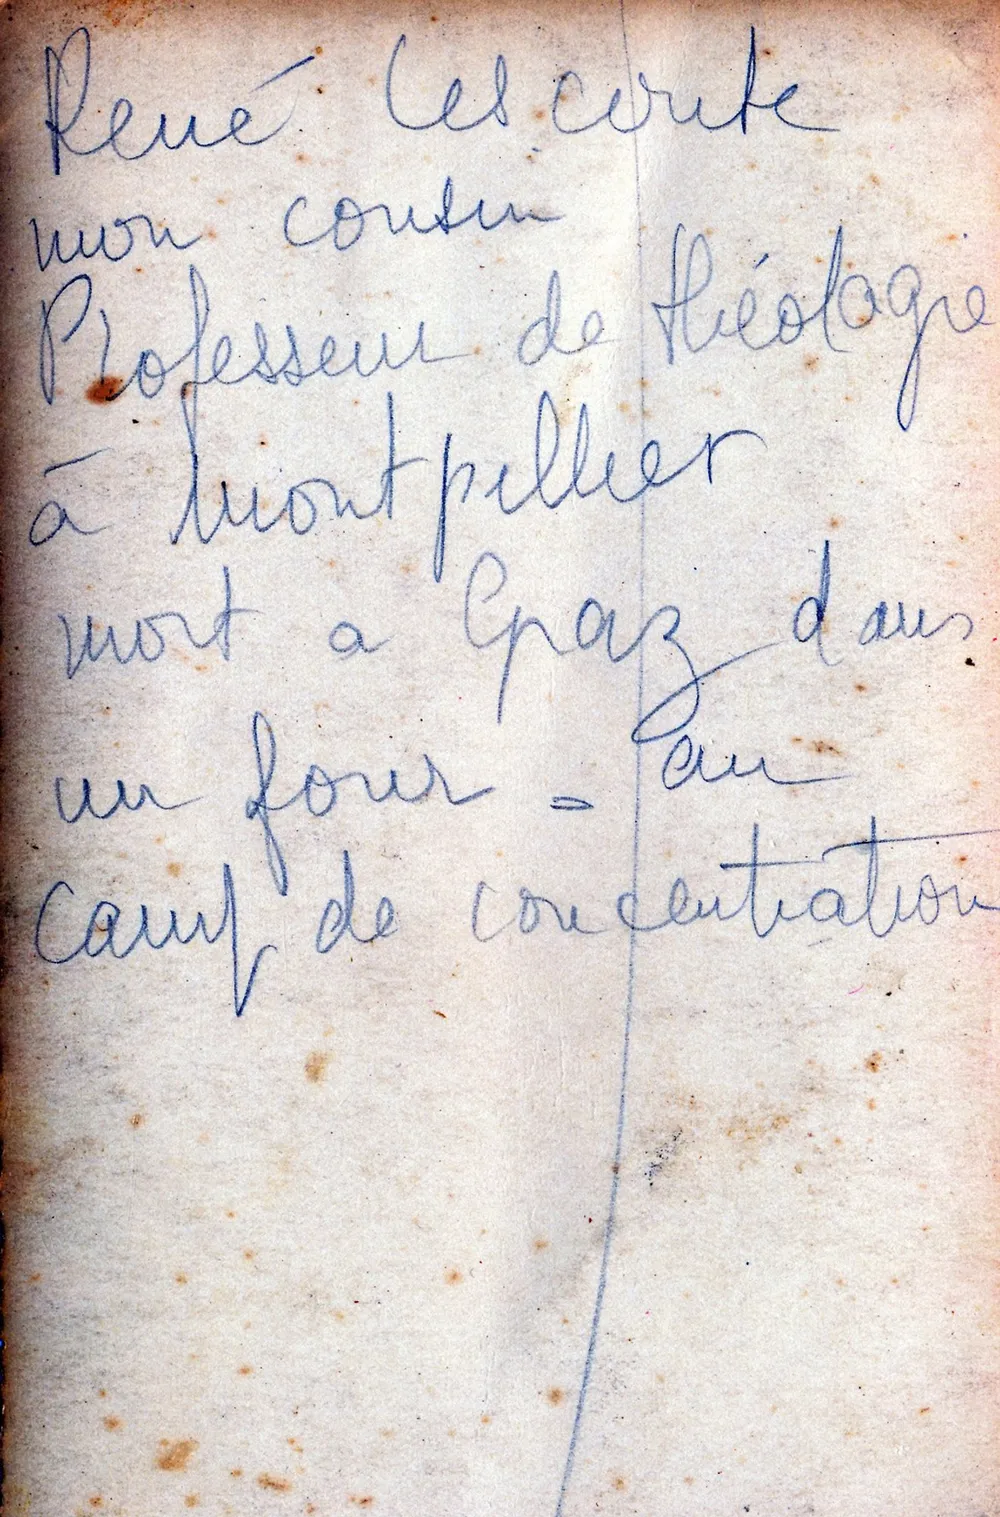 René Lescoute
mon cousin
Professeur de théologie
à Montpellier
mort a Gpaz dans
un four = au
camp de concentration